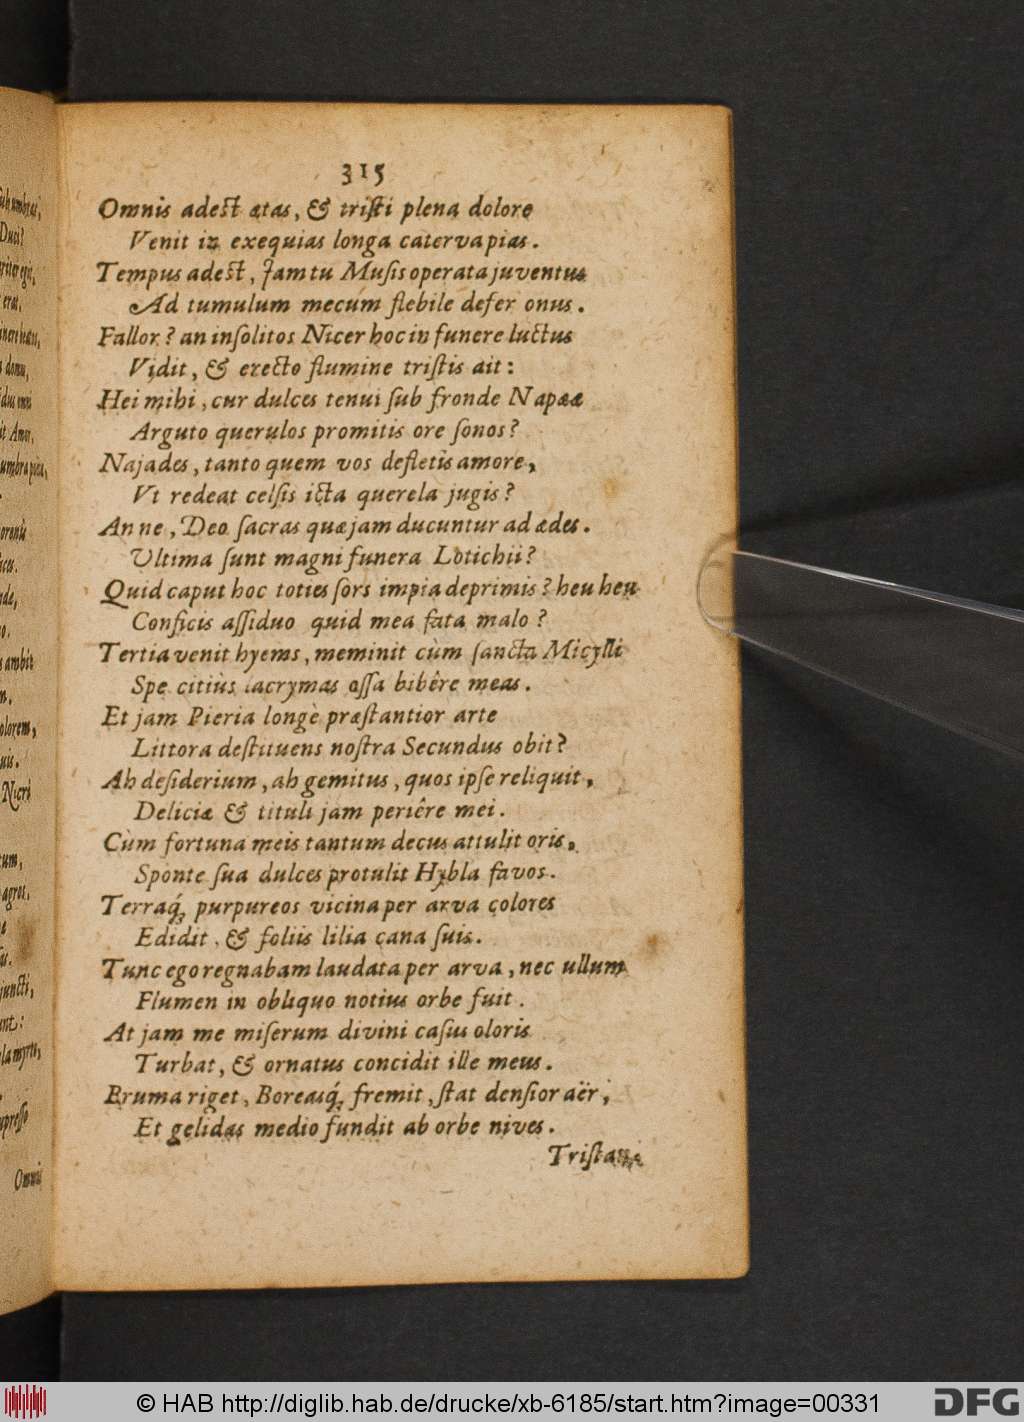 315
Omnis adest ætas, & tristi plena dolore
Venit in exequias longa caterva pias.
Tempus adest, Jam tu Musis operata juventus
Ad tumulum mecum flebile defer onus.
Fallor? an insolitos Nicer hoc in funere luctus
Vidit, & erecto flumine tristis ait:
Hei mihi, cur dulces tenui sub fronde Napææ
Arguto querulos promitis ore sonos?
Najades, tanto quem vos defletis amore,
Vt redeat celsis icta querela jugis?
An ne, Deo sacras quæ jam ducuntur ad ædes.
Ultima sunt magni funera Lotichii?
Quid caput hoc toties sors impia deprimis? heu heu
Conficis assiduo quid mea fata malo?
Tertia venit hyems, meminit cùm sancta Micylli
Spe citiùs lacrymas ossa bibêre meas.
Et jam Pieria longè præstantior arte
Littora destituens nostra Secundus obit?
Ah desiderium, ah gemitus, quos ipse reliquit,
Deliciæ & tituli jam periêre mei.
Cùm fortuna meis tantum decus attulit oris,
Sponte sua dulces protulit Hybla favos.
Terraq́; purpureos vicina per arva colores
Edidit, & foliis lilia cana suis.
Tunc ego regnabam laudata per arva, nec ullum
Flumen in obliquo notius orbe fuit.
At jam me miserum divini casus oloris
Turbat, & ornatus concidit ille meus.
Bruma riget, Boreasq́; fremit, stat densior aër,
Et gelidas medio fundit ab orbe nives.
Omnis
© HAB http://diglib.hab.de/drucke/xb-6185/start.htm?image=00331
DFG